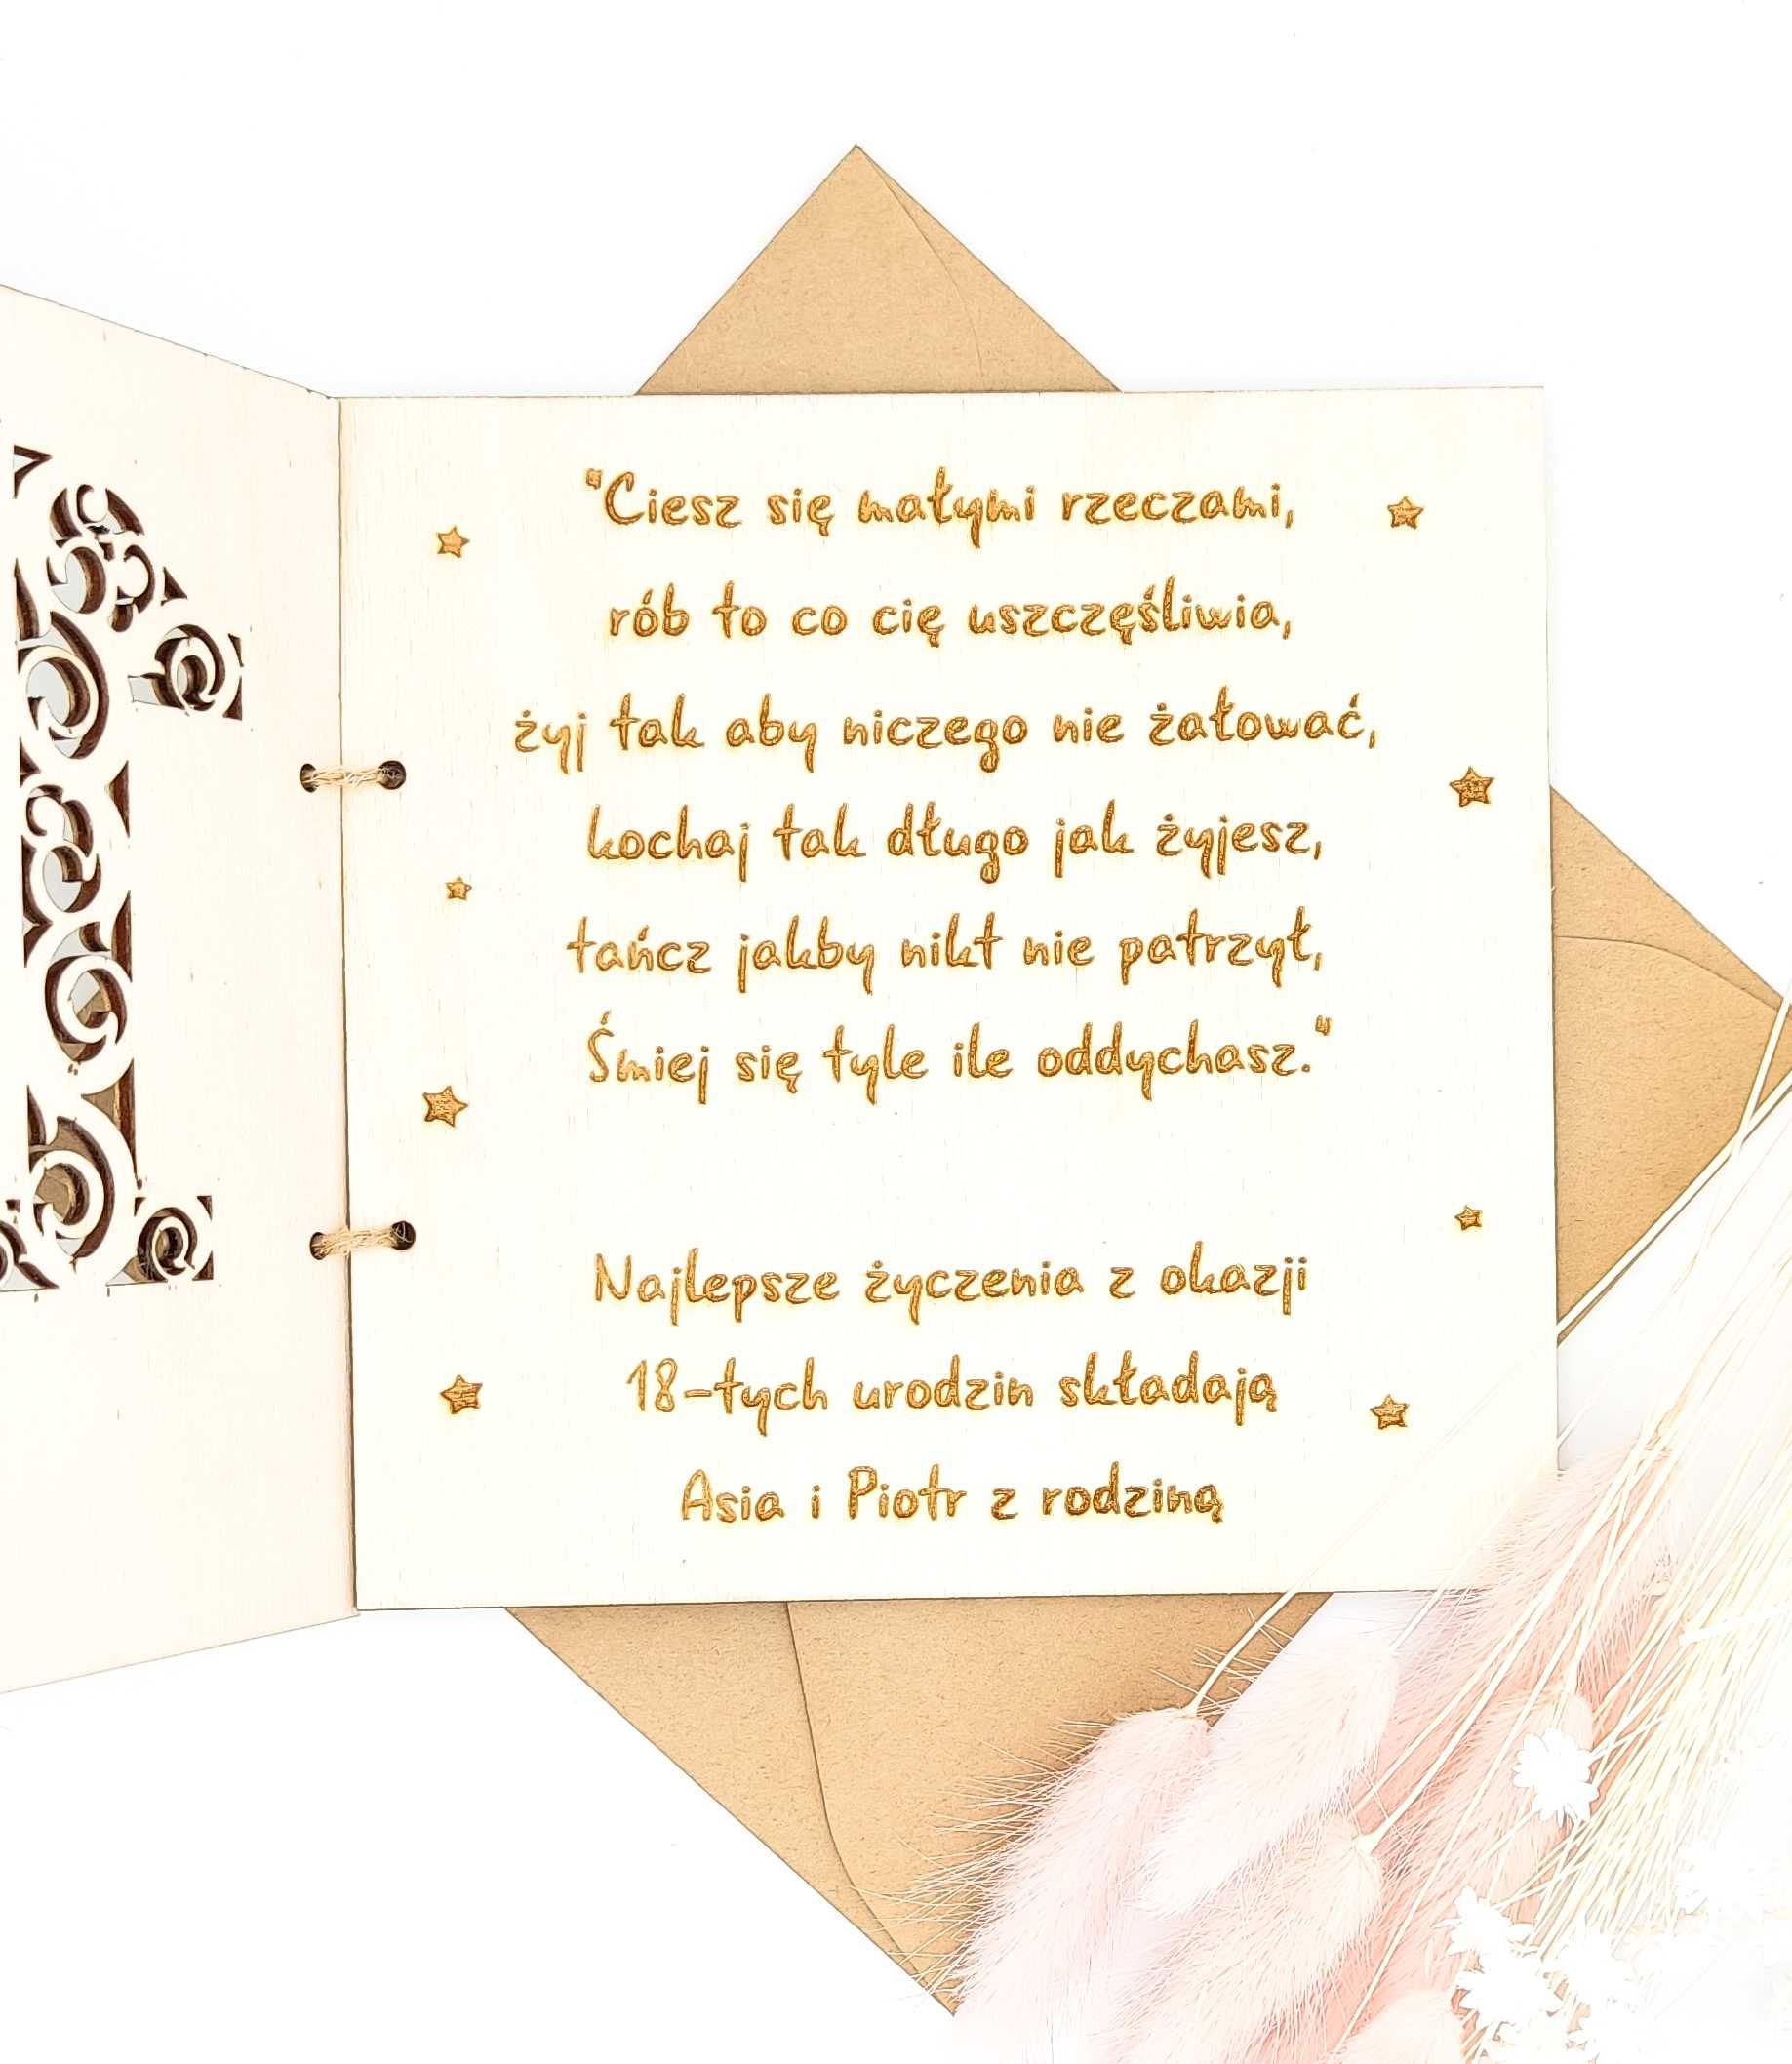 "Ciesz się małymi rzeczami,
rób to co cię uszczęśliwia,
żyj tak aby niczego nie żałować,
kochaj tak długo jak żyjesz,
tańcz jakby nikt nie patrzył,
Śmiej się tyle ile oddychasz."
Najlepsze życzenia z okazji
18-tych urodzin składają
Asia i Piotr z rodziną